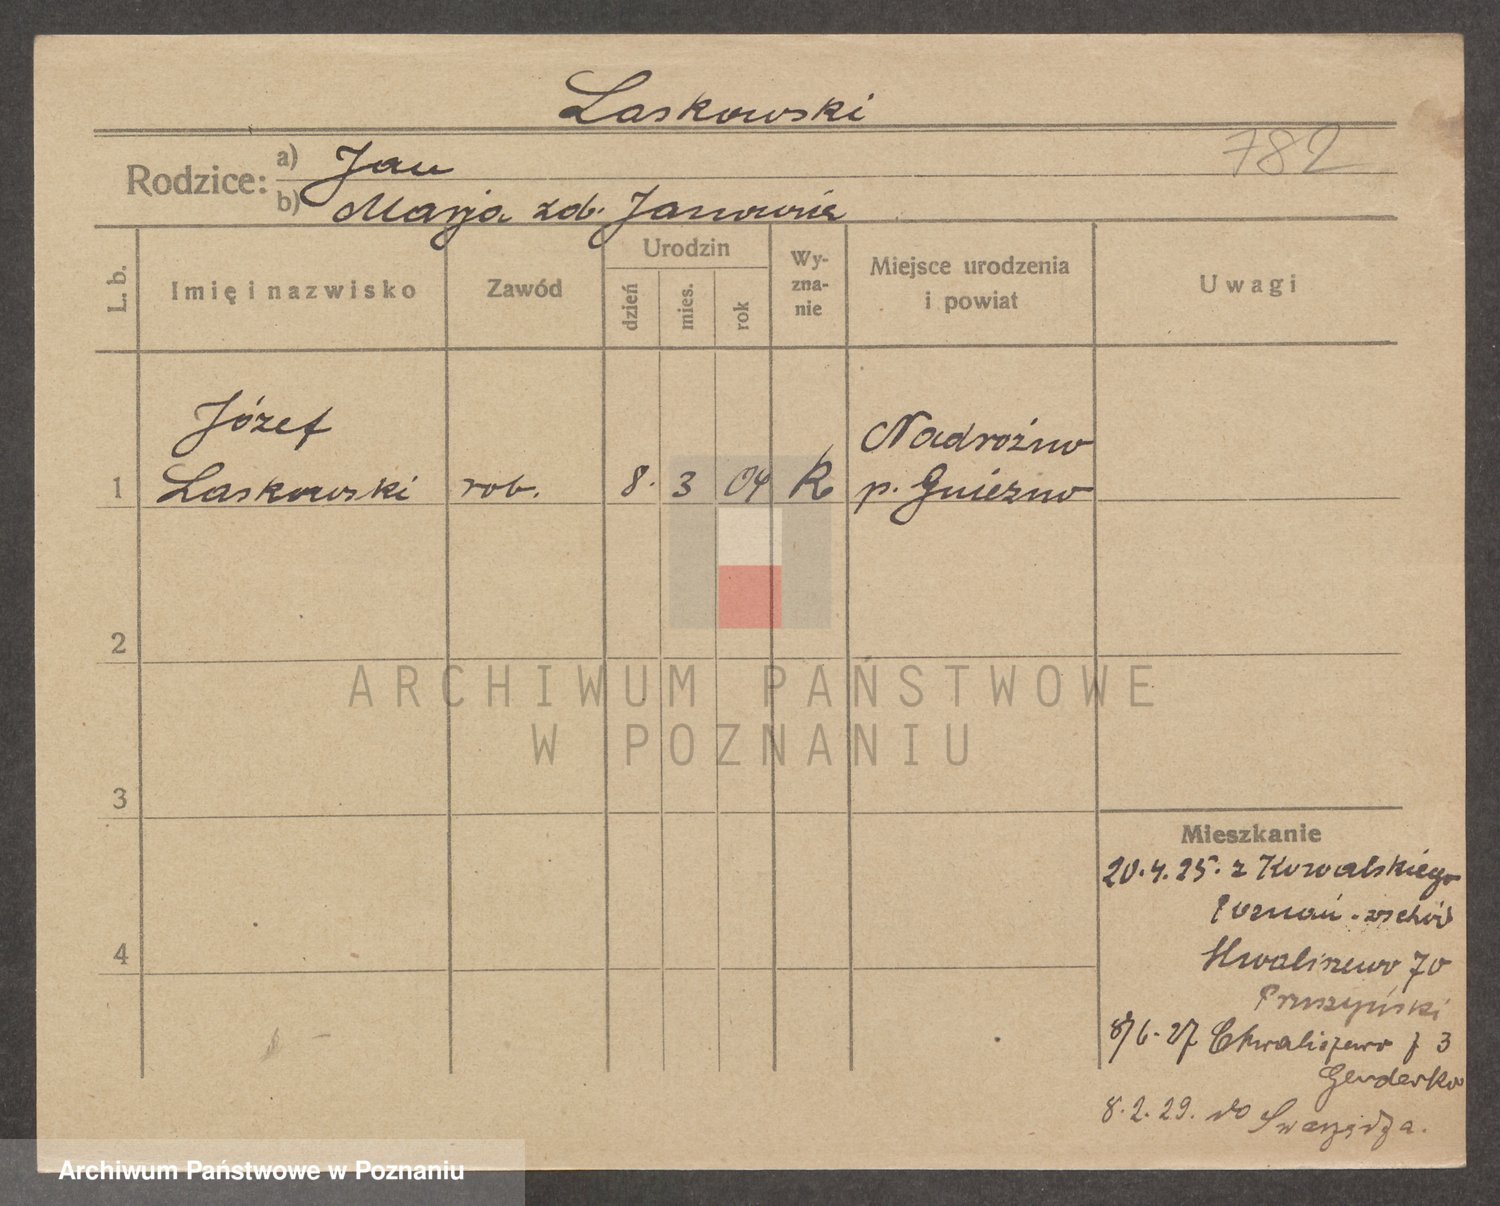 Laskowski
782
Rodzice: a) Jan
b) Marja zd. Janownie
L. b.
Imię i nazwisko
Zawód
Urodzin
dzień
mies.
rok
Wy-
zna-
nie
Miejsce urodzenia
i powiat
Uwagi
Józef
Laskowski
1
rob.
8. 3 04
R
Nadrożno
p. Gniezno
2
3
4
ARCHIWUM PAŃSTWOWE
W POZNANIU
Mieszkanie
20.4.25. z Kowalskiego
Poznań-wschód
Hwaliszewo 70
Pruszyński
8/6.27 Chwaliszewo 73
8.2.29. do Swarzędza.
Archiwum Państwowe w Poznaniu